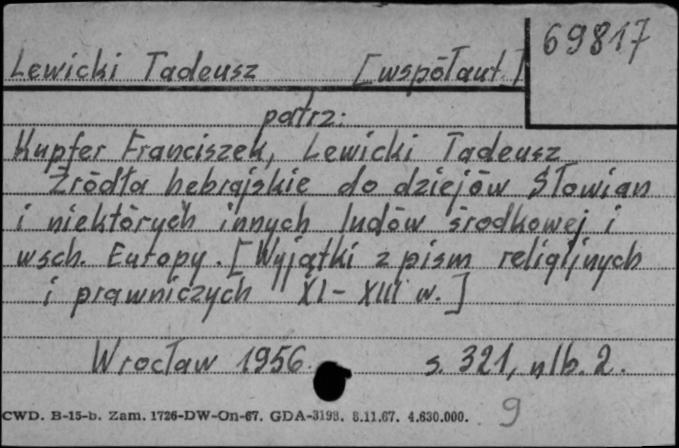 69817
Lewicki Tadeusz [współaut.]
patrz:
Kupfer Franciszek, Lewicki Tadeusz
Źródła hebrajskie do dziejów Słowian
i niektórych innych ludów środkowej i
wsch. Europy. [Wyjątki z pism religijnych
i prawniczych XI-XIII w.]
Wrocław 1956. s. 321, nlb. 2.
CWD. B-15-b. Zam. 1726-DW-On-67. GDA-3198. 8.11.67. 4.630.000. 9